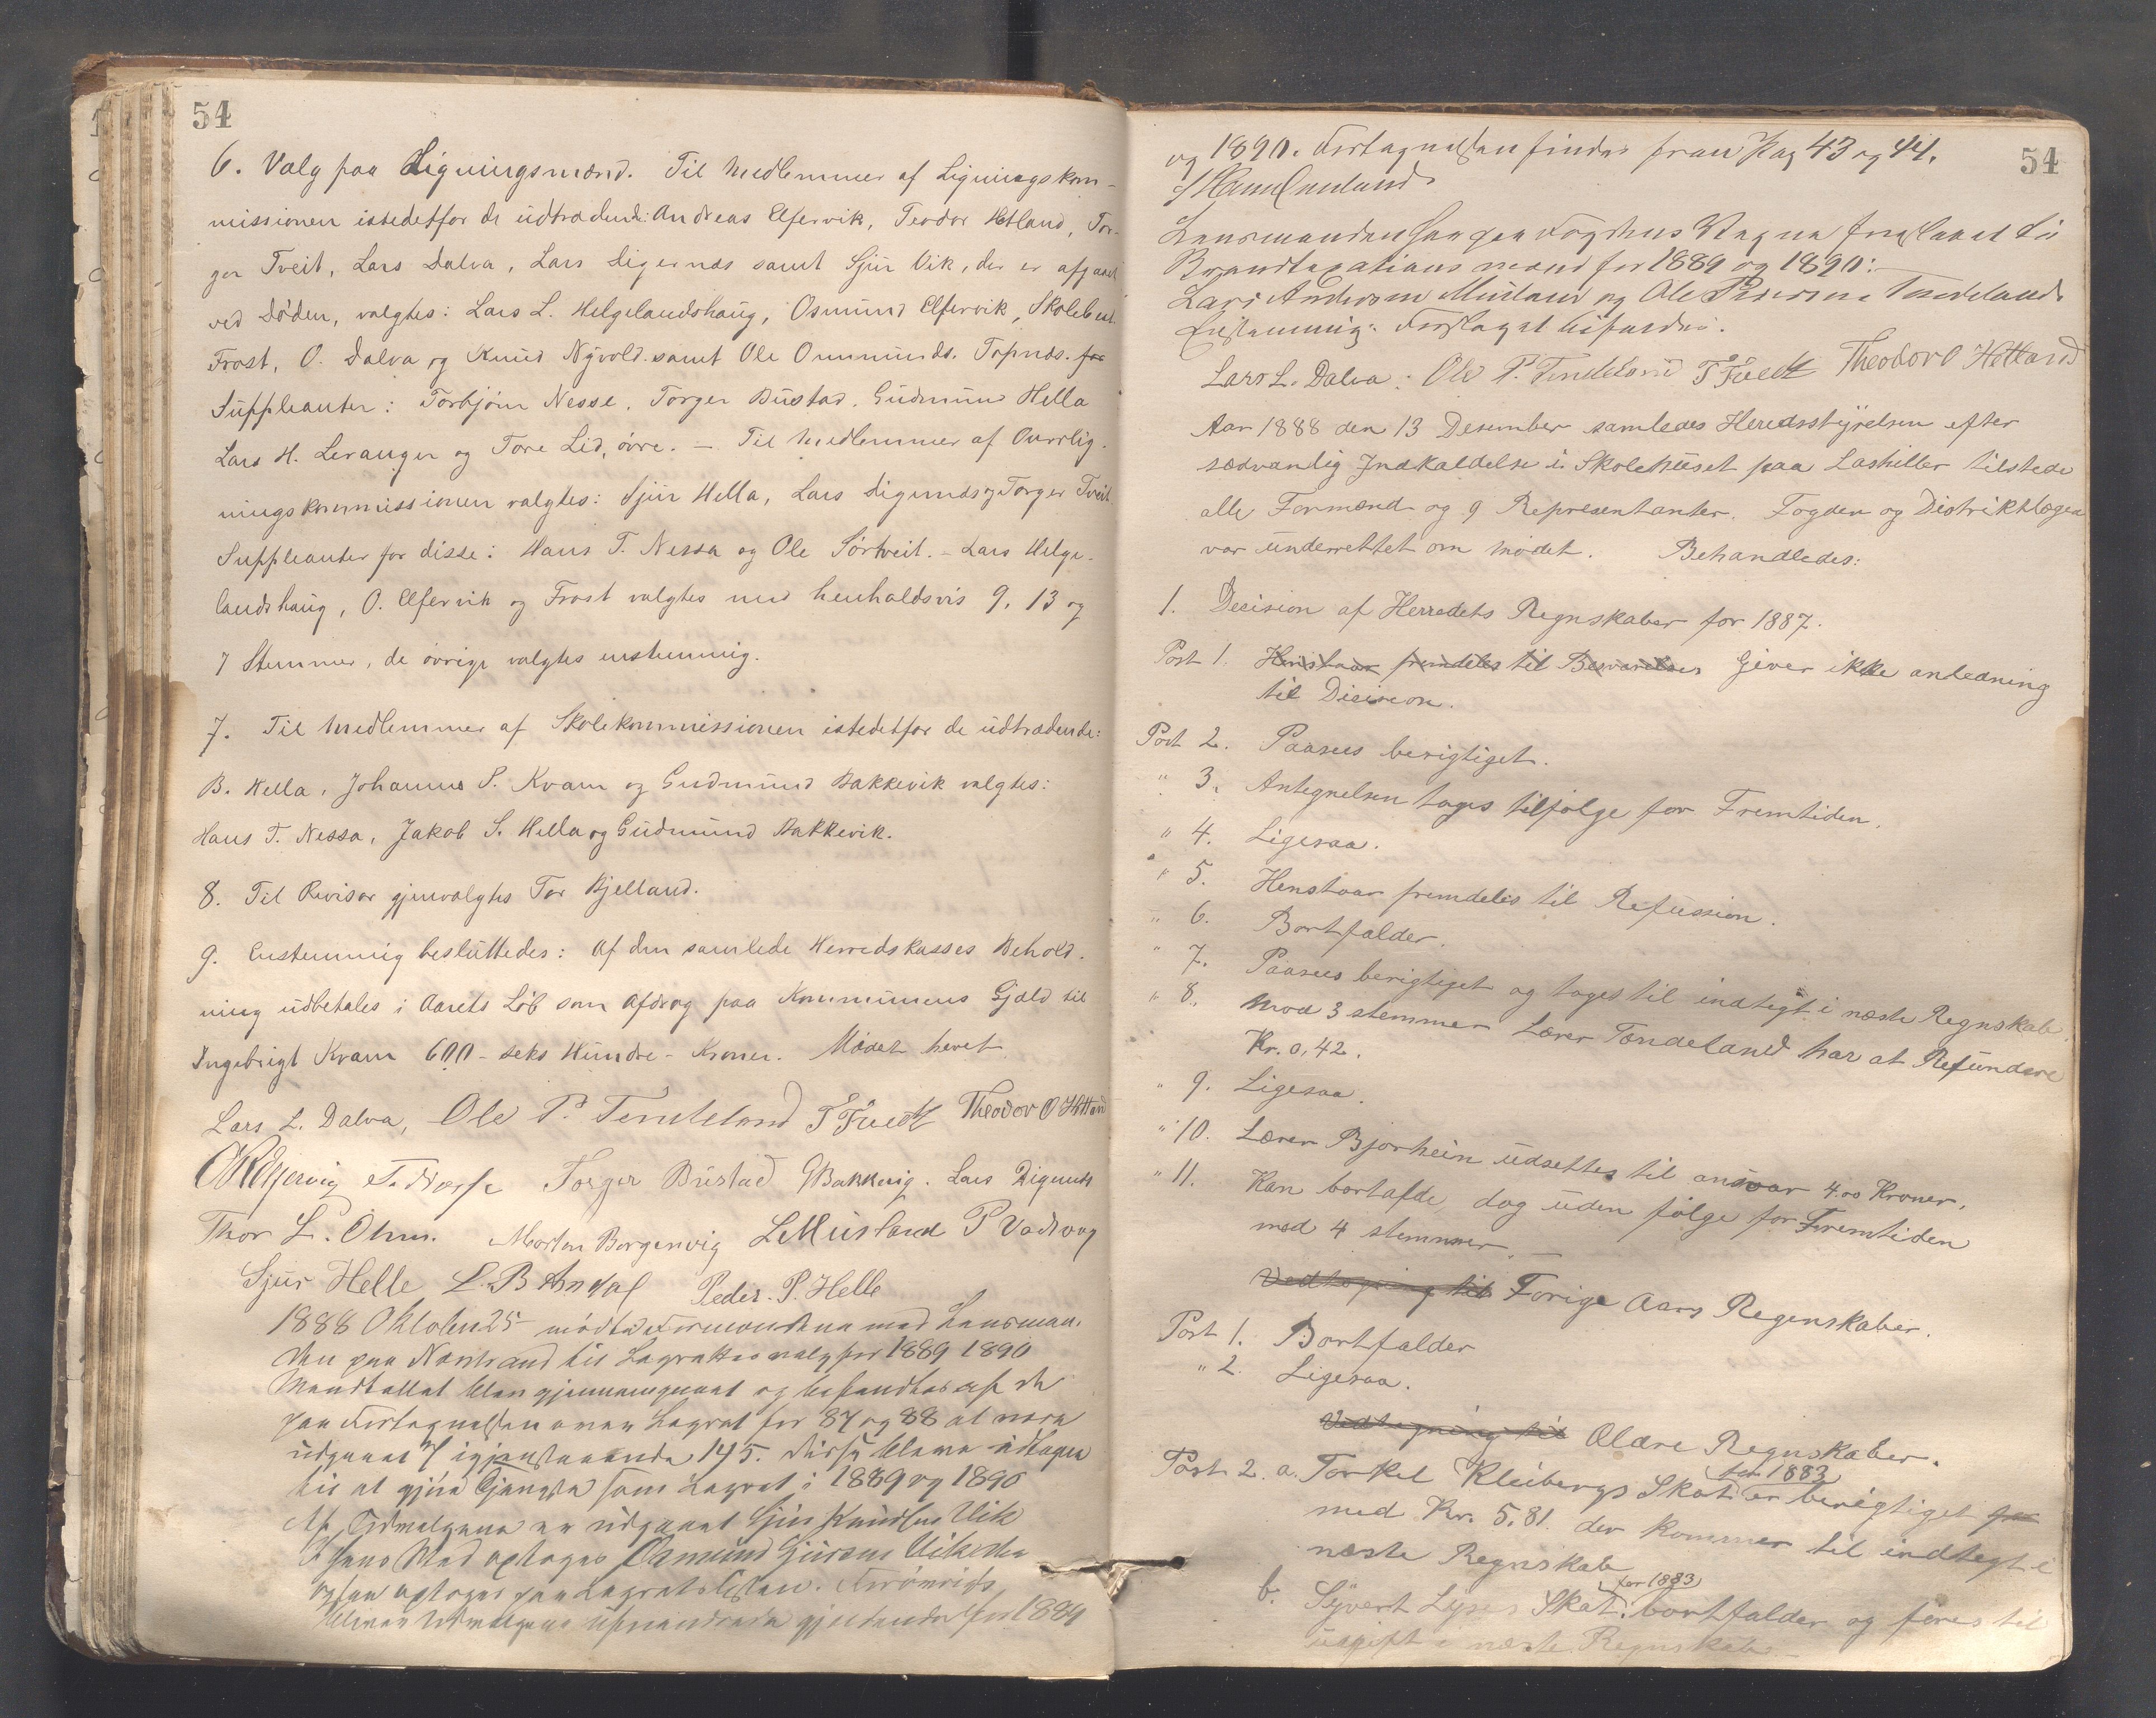 54
6. Valg paa Ligningsmænd. Til Medlemmer af Ligningskom-
missionen istedetfor de udtrædende: Andreas Elfervik, Teodor Hetland, Tor-
ger Tveit, Lars Dalva, Lars Digernæs samt Sjur Vik, der er afgaaet
ved Døden, valgtes: Lars L. Helgelandshaug, Osmund Elfervik, Skolebest.
Frost, O. Dalva og Knud Nyvold samt Ole Ommunds. Tøpnæs. for
Suppleanter: Torbjørn Nesse, Torger Bustad, Gudmund Hella
Lars H. Levanger og Tore Lid, øvre. – Til Medlemmer af Overlig-
ningskommissionen valgtes: Sjur Hella, Lars Digernæs og Torger Tveit
Suppleanter for disse: Hans T. Nessa og Ole Sørtveit. – Lars Helge-
landshaug, O. Elfervik og Frost valgtes med henholdsvis 9, 13 og
7 Stemmer, de øvrige valgtes enstemmig.
7. Til Medlemmer af Skolekommissionen istedetfor de udtrædende:
B. Hella, Johannes S. Kvam og Gudmund Bakkevik valgtes:
Hans T. Nessa, Jakob S. Hella og Gudmund Bakkevik.
8. Til Revisor gjenvalgtes Tor Bjelland.
9. Enstemmig besluttedes: Af den samlede Herredskasses Behold-
ning udbetales i Aarets Løb som Afdrag paa Kommunens Gjæld til
Ingebrigt Kvam 600 – seks Hundre – Kroner. Mødet hevet
Lars L. Dalva, Ole P. Tendeland T Tveit Theodor O Hetland
Torger Bustad GBakkevig. Lars Digernes
Thor L. Ohm. Morten Borgenvig LMusland P Vadvag
Sjur Helle L. B Andal Peder. P. Helle
1888 Oktober 25 mødte Formændene med Lensman-
den paa Nærstrand til Lagrettesvalg for 1889 1890
Mandtallet blev gjennemgaaet og befandtes af de
paa Fortegnelsen over Lagret for 87 og 88 at være
udgaaet 7 igjenstaaende 145. disse bleve udtagne
til at gjøre Tjeneste som Lagret i 1889 og 1890
Af Vidmælgene er udgaaet Sjur Knudsen Vik
I hans Sted optoges Osmund Sjursen
og saa optoges paa Lagretslisten.
gjeldende for 1889
54
og 1890. Fortegnelsen findes foran Pag 43 og 44.
Lensmanden har paa Fogdens Vegne foreslaaet til
Brandtaxationsmænd for 1889 og 1890:
Lars Andersen Musland og Ole Pedersen Tendeland.
Enstemmig: Forslaget bifaldes.
Lars L. Dalva: Ole P. Tendeland T Tveit Theodor O Hetland
Aar 1888 den 13 Desember samledes Heredsstyrelsen efter
sædvanlig Indkaldelse i Skolehuset paa Laskiller tilstede
alle Formænd og 9 Representanter. Fogden og Distriktlægen
var underrettet om mødet. Behandledes:
1. Desision af Herredets Regnskaber for 1887.
Post 1. Henstaar fremdeles til Besvarelse Giver ikke anledning
til Disision.
Post 2. Paasees berigtiget.
" 3. Antegnelsen tages tilfølge for Fremtiden.
" 4. Ligesaa.
" 5. Henstaar fremdeles til Refussion.
" 6. Bortfalder.
" 7. Paasees berigtiget og tages til indtegt i næste Regnskab.
" 8. Mod 3 stemmer Lærer Tændeland har at Refundere
Kr. 0,42.
" 9. Ligesaa.
" 10. Lærer Bjorhein udsettes til ansvar 4.00 Kroner.
" 11. Kan bortafde, dog uden følge for Fremtiden
mod 4 stemmer. –
Vedtegning til Forige Aars Regenskaber.
Post 1. Bortfalder
" 2. Ligesaa.
Vedtegning til Oldre Regnskaber.
Post 2. a. Torkel Kleibergs Skat for 1883 er berigtiget for
med Kr. 5.81. der kommer til indtegt i
næste Regnskab
b. Syvert Lyses Skat for 1883 bortfalder og føres til
udgift i næste Regnskab –